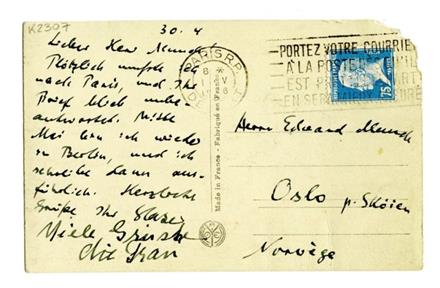 K2307
30. 4
Lieber Herr Munch
Plötzlich musste ich
nach Paris, und Ihr
Brief blieb unbe-
antwortet. Mitte
Mai bin ich wieder
in Berlin, und ich
schreibe dann aus-
führlich. Herzliche
Grüße Ihr Glaser
Viele Grüsse
die Frau
Made in France - Fabriqué en France
PARIS R.P.
PORTEZ VOTRE COURRIE
A LA POSTE
EST
EN SER
75
Herrn Edvard Munch
Oslo p. Skøien
Norvège